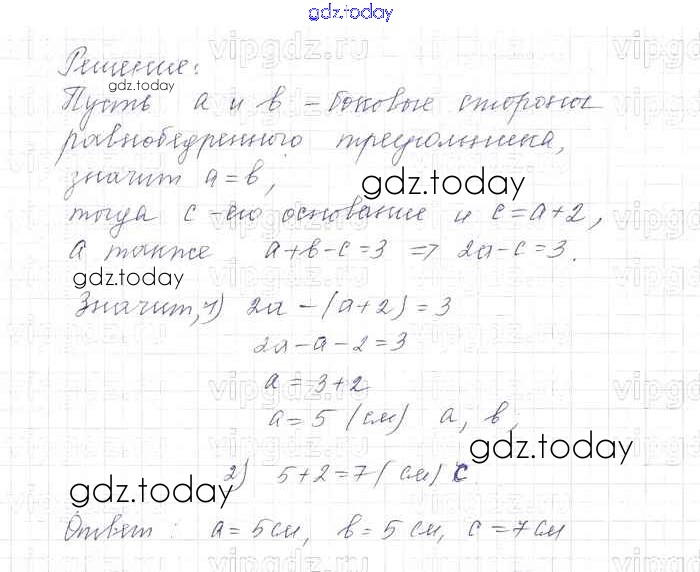 gdz.today
Решение:
gdz.today
Пусть a и b - боковые стороны
равнобедренного треугольника,
значит a = b,
gdz.today
тогда c - его основание и c = a + 2,
а также a + b - c = 3 => 2a - c = 3.
gdz.today
Значит, 1) 2a - (a + 2) = 3
2a - a - 2 = 3
a = 3 + 2
a = 5 (см) a, b,
gdz.today
2) 5 + 2 = 7 (см) c
gdz.today
Ответ: a = 5 см, b = 5 см, c = 7 см
vipgdz.ru